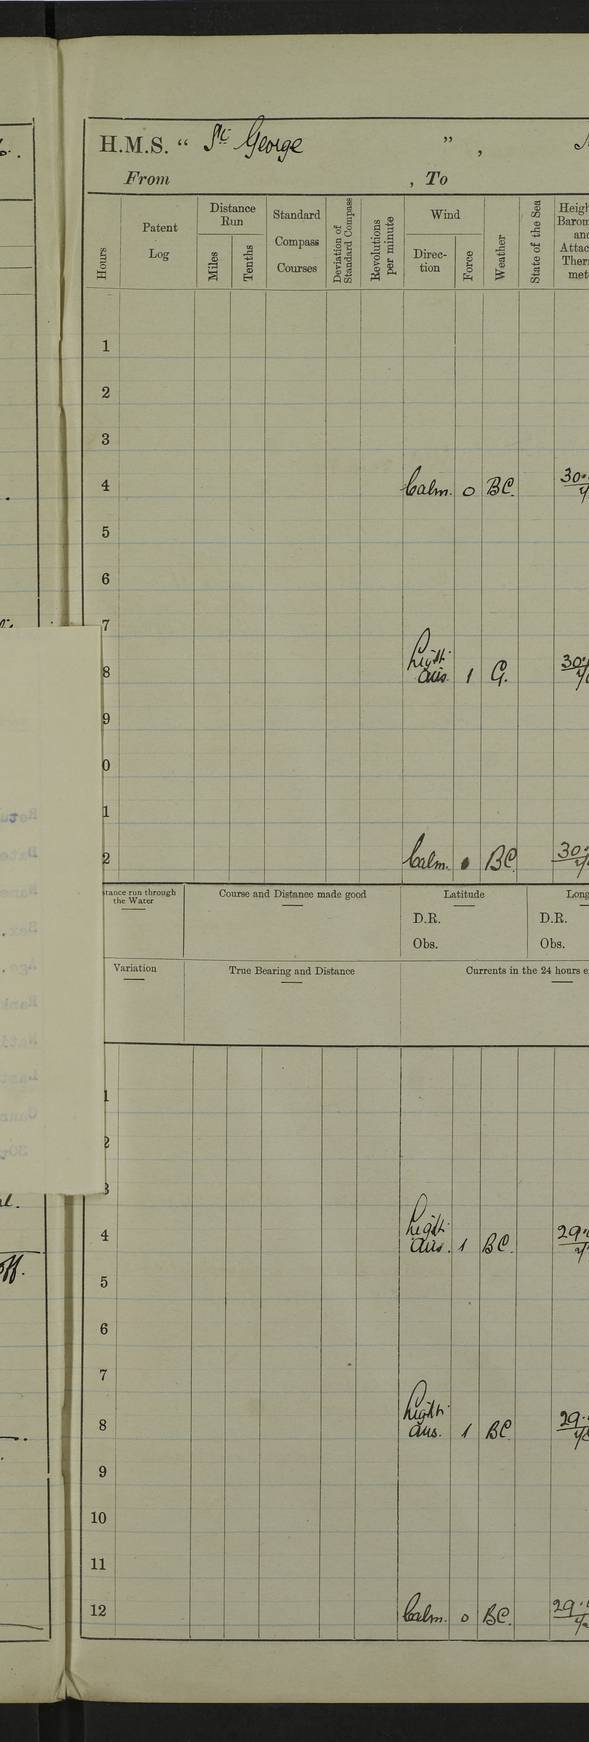 H.M.S. “ St. George ” ,
From , To
Hours
Patent Log
Distance Run
Miles
Tenths
Standard Compass Courses
Deviation of Standard Compass
Revolutions per minute
Wind
Direc-tion
Force
Weather
State of the Sea
1
2
3
4 Calm. 0 BC. 30.
5
6
7
8 Light airs. 1 G. 30.
9
0
1
2 Calm. 0 BC 30.
stance run through the Water
Course and Distance made good
Latitude
D.R.
Obs.
Long
D.R.
Obs.
Variation
True Bearing and Distance
Currents in the 24 hours e
1
2
3
4 Light airs. 1 BC. 29.
5
6
7
8 Light airs. 1 BC. 29.
9
10
11
12 Calm. 0 BC. 29.